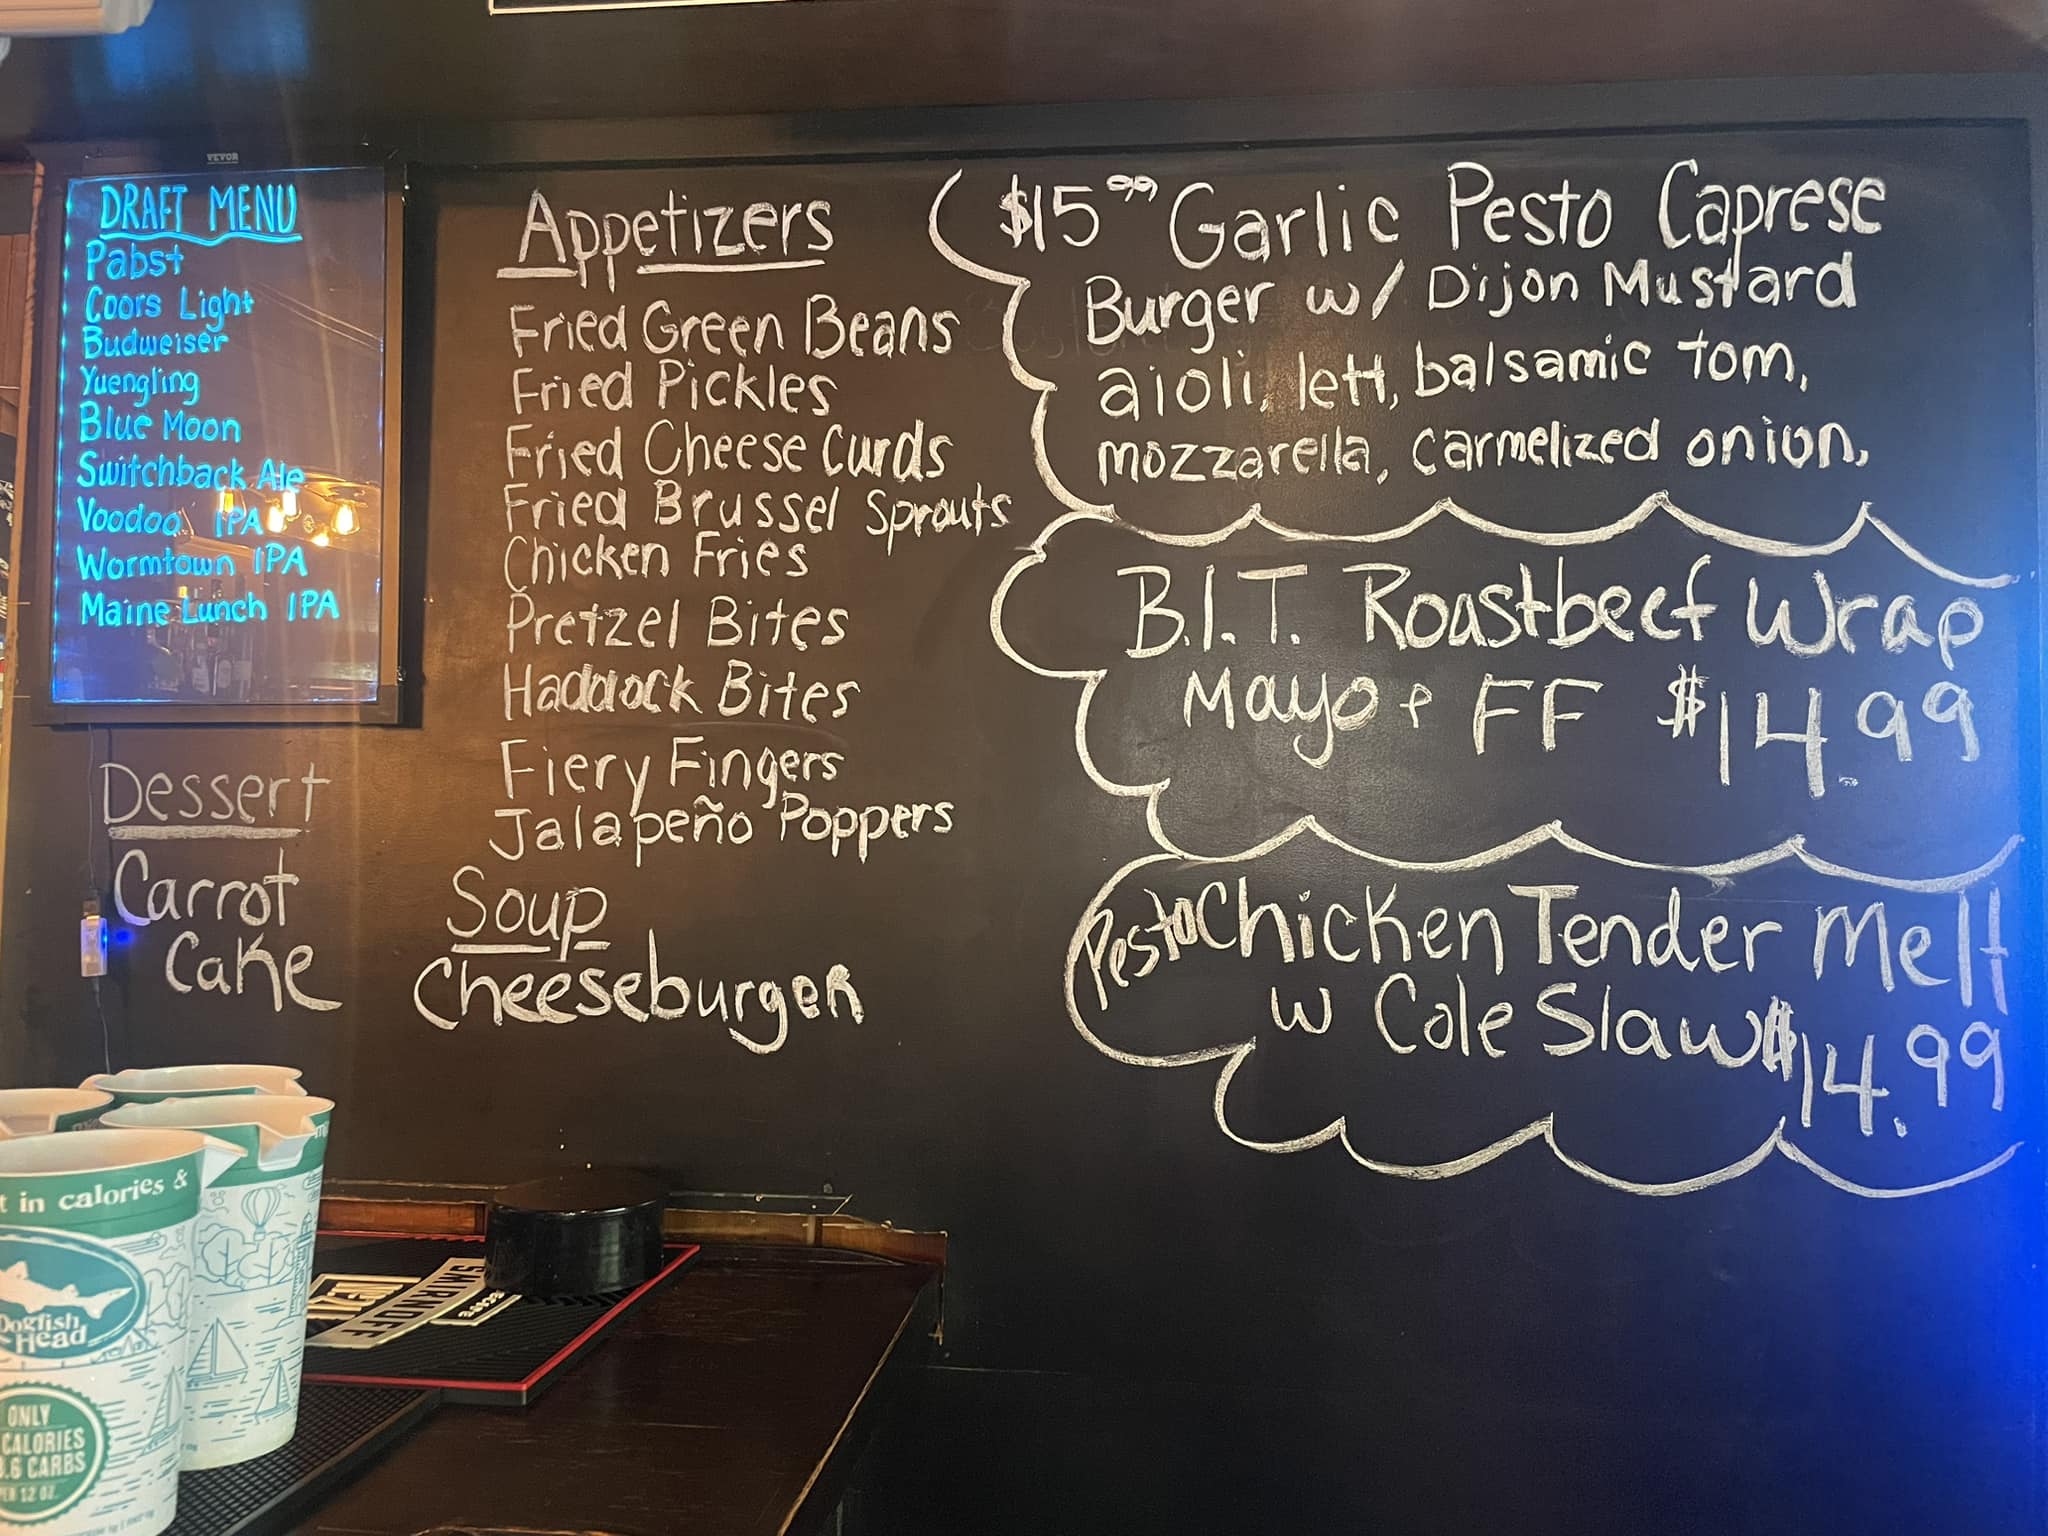 VEVOR
DRAFT MENU
Pabst
Coors Light
Budweiser
Yuengling
Blue Moon
Switchback Ale
Voodoo IPA
Wormtown IPA
Maine Lunch IPA
Dessert
Carrot
Cake
Appetizers
Fried Green Beans
Fried Pickles
Fried Cheese Curds
Fried Brussel Sprouts
Chicken Fries
Pretzel Bites
Haddock Bites
Fiery Fingers
Jalapeño Poppers
Soup
Cheeseburger
$15.99 Garlic Pesto Caprese
Burger w/ Dijon Mustard
aioli, lett, balsamic tom,
mozzarella, carmelized onion,
B.L.T. Roastbeef Wrap
Mayo + FF $14.99
Pesto Chicken Tender Melt
w Cole Slaw $14.99
in calories &
Dogfish
Head
ONLY
CALORIES
.6 CARBS
PER 12 OZ.
SMIRNOFF